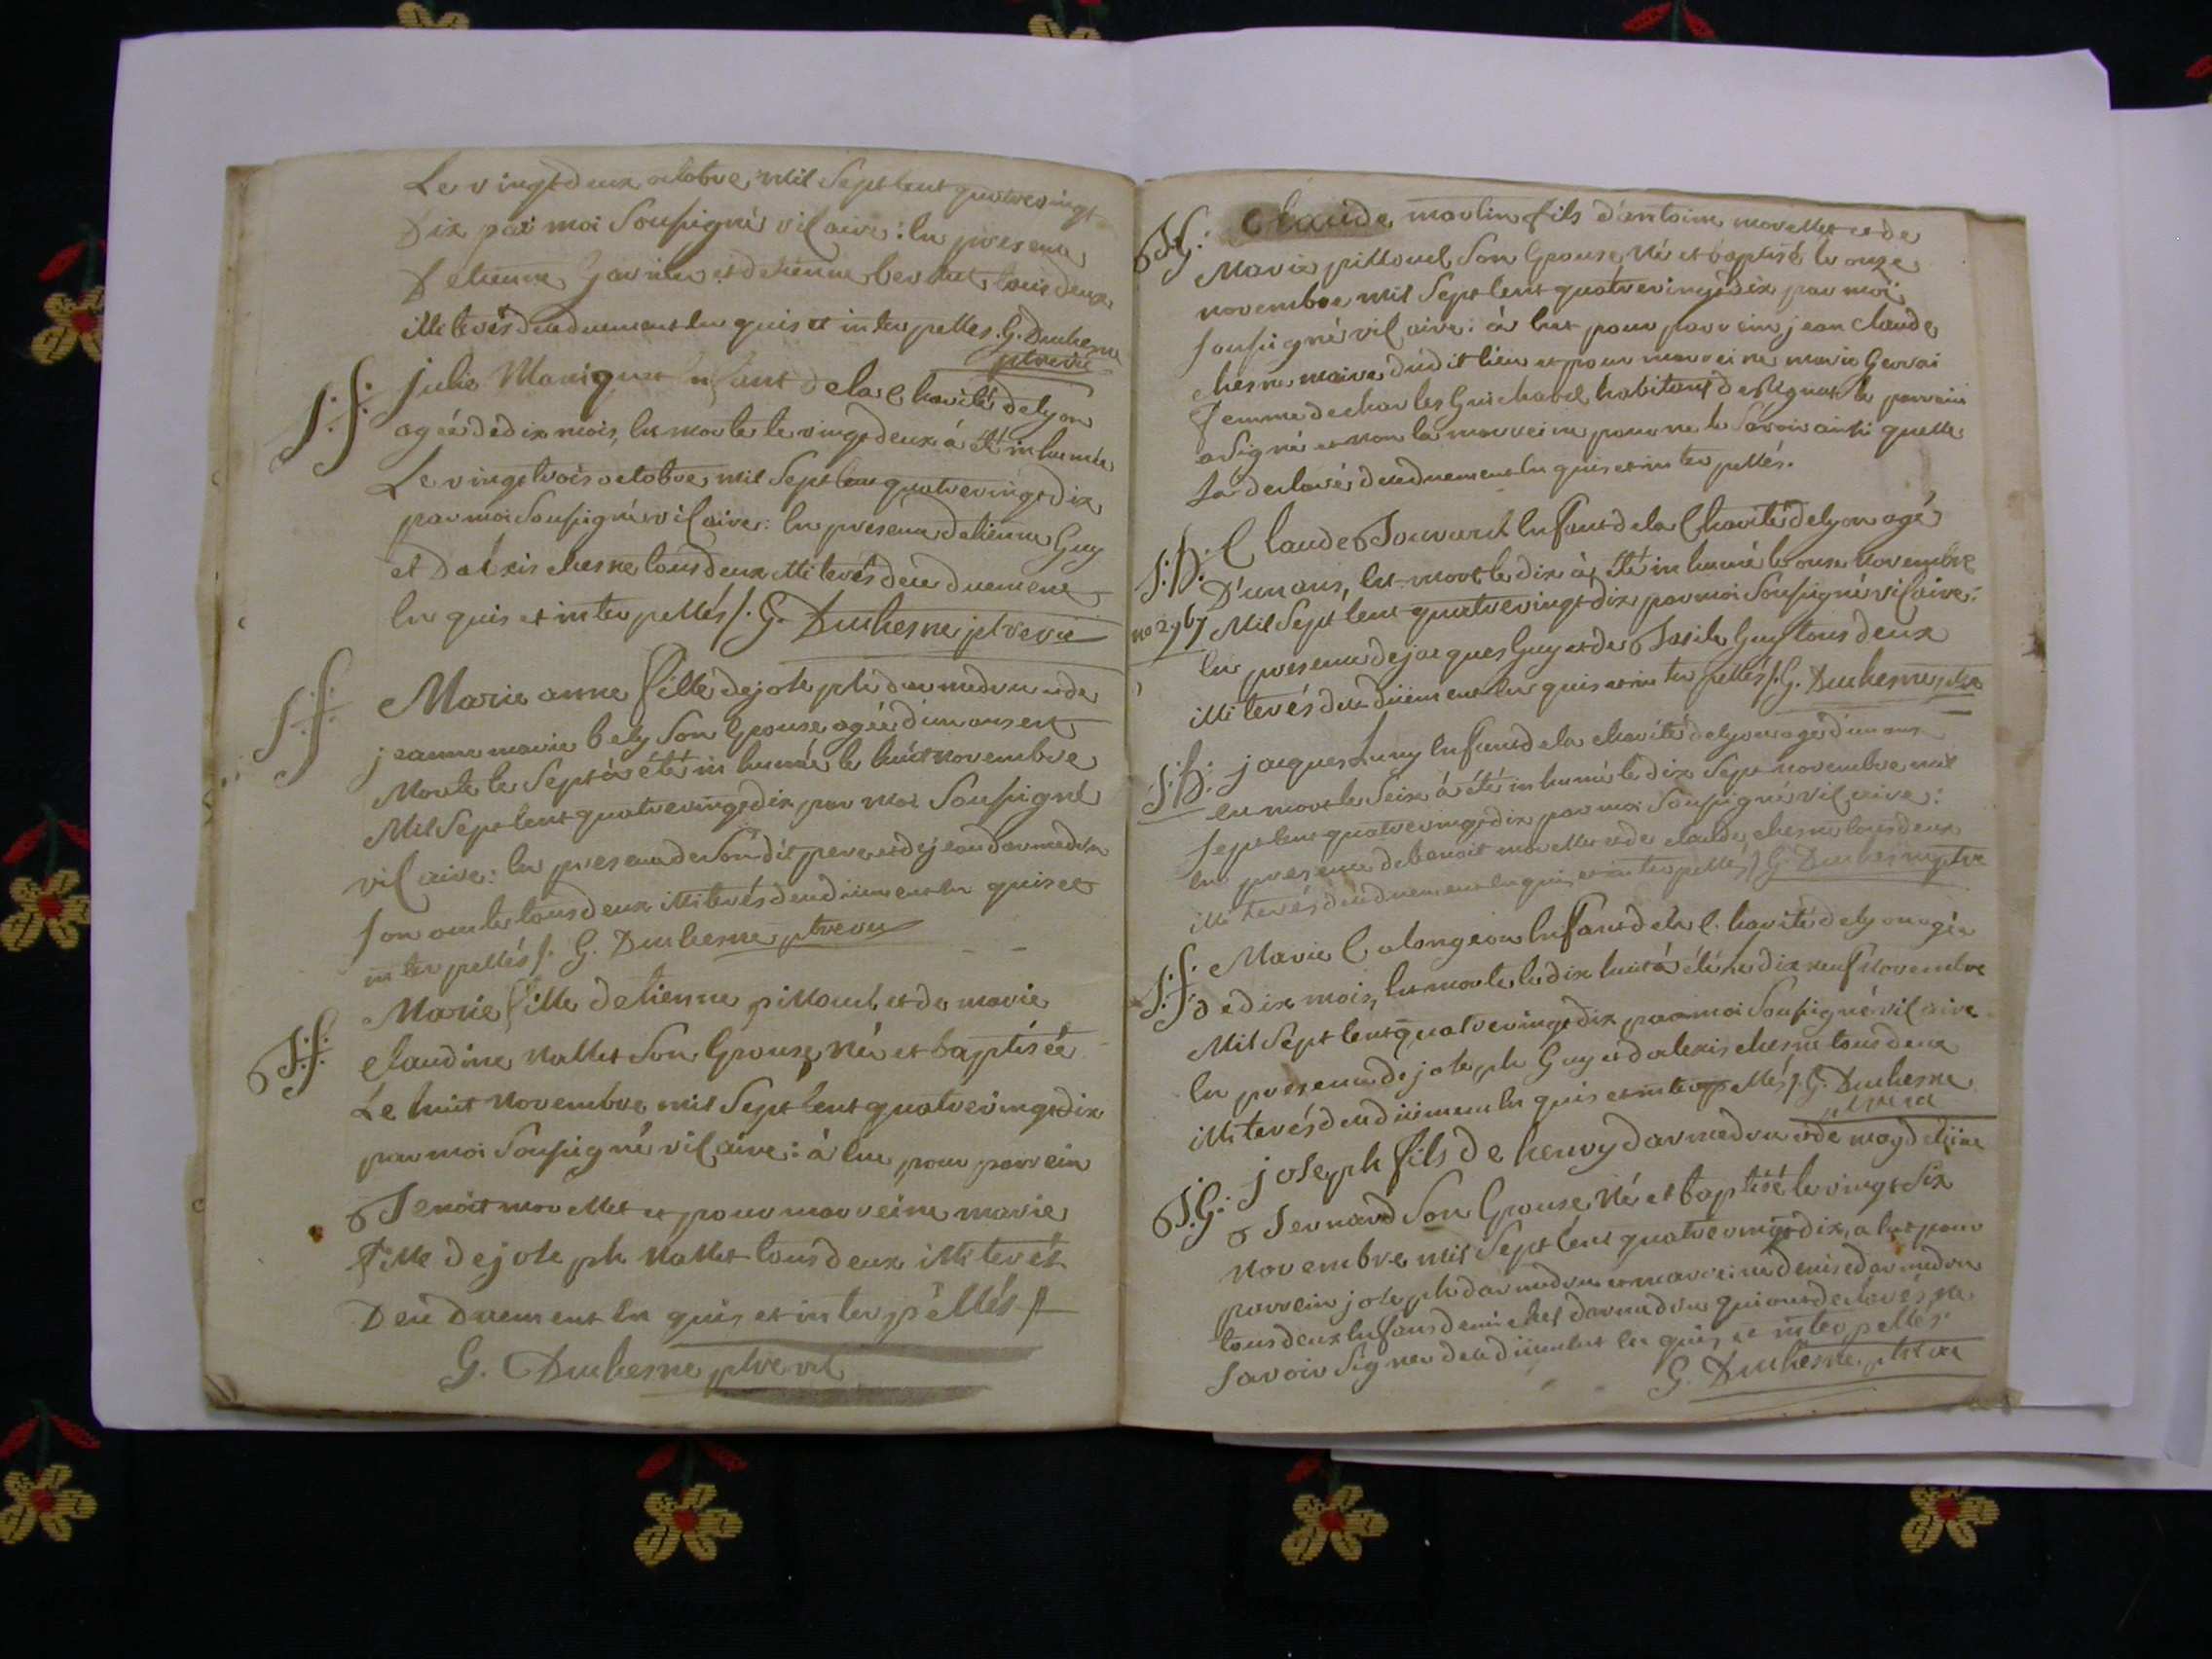 Le vingt deux octobre mil Sept Cent quatrevingt
Dix par moi Soussigné vicaire : En presence
D'etienne et detienne tous deux
illiterés deuduement En quis et inter pellés. G. Duchesne
ptrevic
S: f: julie Maniquet Enfant dela Charité delyon
agéé dedix mois, Est morte le vingt deux à Eté inhumée
Le vingt trois octobre mil Sept Cent quatrevingt dix
par moi Soussigné vicaire : En presence detienne Guy
et Dalexis chesne tous deux illiterés deu duement
En quis et inter pellés /. G. Duchesne ptrevic
S: f: Marie anne fille dejoseph darmedru et de
jeanne marie bely Son Epouse agéé dun an est
Morte le Sept à été in humée le huit novembre
Mil Sept Cent quatrevingt dix par moi Soussigné
vicaire : En presence de Son dit pere et dejean darmedru
Son oncle tous deux illiterés deuduement En quis et
inter pellés /. G. Duchesne ptrevic
B: f: Marie fille detienne pillouel et de marie
claudine nallet Son Epouse, Née et baptiséé
Le huit Novembre mil Sept Cent quatrevingt dix
par moi Soussigné vicaire : à Eu pour parrein
Benoit morellet et pour marreine marie
fille dejoseph nallet tous deux illiterés
Deu Duement En quis et inter pellés /.
G. Duchesne ptre vic
B: G: Claude marlin fils d'antoine morellet et de
Marie pillouel Son Epouse, Né et baptisé le onze
novembre mil Sept Cent quatrevingt dix par moi
soussigné vicaire : à Eut pour parrein jean claude
chesne maire dudit lieu et pour marreine marie Gervai
femme decharles Guichard habitant de le parrein
a Signé et non la marreine pour ne le Savoir ainsi quelle
La declaré deuduement En quis et inter pellés.
S: h: Claude Bouvard Enfant dela Charité delyon agé
D'un ans, Est mort le dix à Eté in humé le onze novembre
no 2967 Mil Sept Cent quatrevingt dix par moi Soussigné vicaire :
En presence dejacques Guy et de Basile Guy tous deux
illiterés deu duement En quis et inter pellés /. G. Duchesne ptre
S: h: jacques Luny Enfant dela charité delyon agé dun ans
Est mort le Seize à été in humé le dix Sept novembre mil
Sept Cent quatrevingt dix par moi Soussigné vicaire :
En presence debenoit morellet et de claude chesne tous deux
illiterés deuduement En quis et inter pellés /. G. Duchesne ptre
S: f: Marie Calongeon Enfant dela Charité delyon agéé
dedix mois, Est morte le dix huit à été le dix neuf Novembre
Mil Sept Cent quatrevingt dix par moi Soussigné vicaire
En presence dejoseph Guy et dalexis chesne tous deux
illiterés deuduement En quis et inter pellés /. G. Duchesne
ptrevic
B: G: joseph fils de henry darmedru et de magdeleine
Bernard Son Epouse, Né et baptisé le vingt Six
Novembre mil Sept Cent quatrevingt dix, a Eut pour
parrein joseph darmedru et marreine denise darmedru
tous deux Enfans demichel darmedru qui ont declarés ne
Savoir Signer deuduement En quis et inter pellés.
G. Duchesne ptre vic